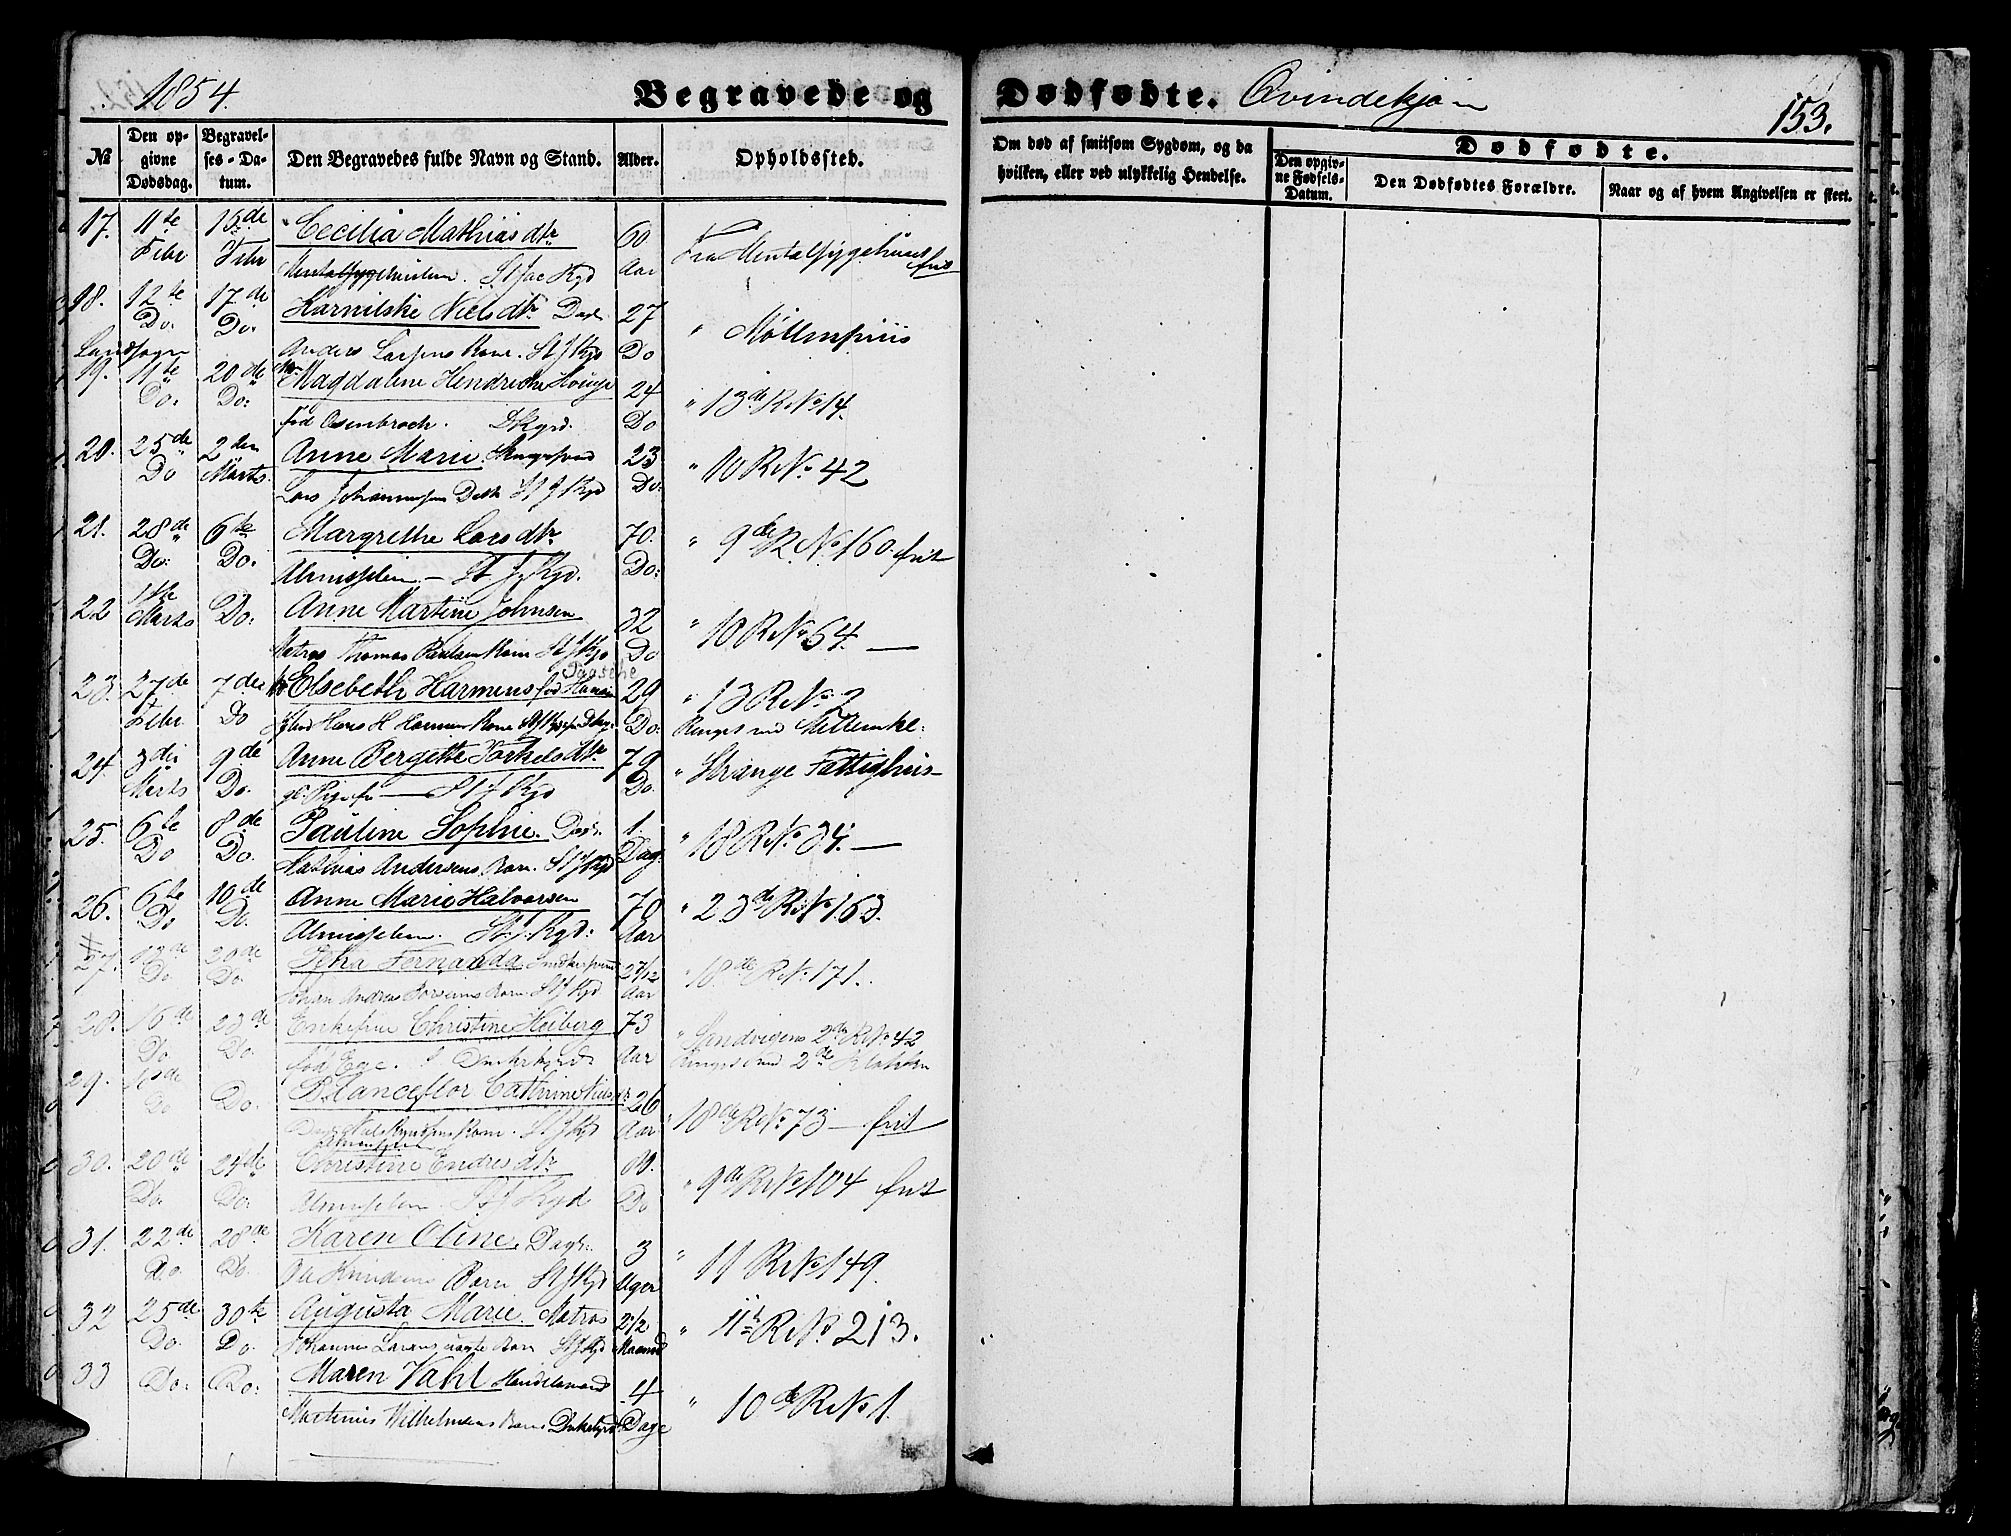 1854.
Begravede og Dødfødte. Qvindekjøn
153.
№
Den opgivne Dødsdag.
Begravelses-Datum.
Den Begravedes fulde Navn og Stand.
Alder.
Opholdssted.
Om død af smitsom Sygdom, og da hvilken, eller ved ulykkelig Hendelse.
Dødfødte.
Den opgivne Fødsels-Datum.
Den Dødfødtes Forældre.
Naar og af hvem Angivelsen er skeet.
17. 11te Febr 15de Febr Cecilia Mathiasdtr 60 Aar Fra Mentalsygehuset frit
St Jac Kgd
18. 12te Do. 17de Do. Nielsdtr Dagl. 27 Do " Møllenpriis
Landsogn Anders Larsens Kone. St J Kgd
19. 11te Do: 20de Do: Magdalene Hendrikke 24 Do " 13de R No 14.
fød Osenbroch.
20. 25de Do 2den Marts. Anne Marie. 23 Do: " 10 R No 42
Lars Johannesen Dtr St J Kgd
21. 28de Do: 6te Do. Margrethe Larsdtr 70. Do: " 9de R. No 160. frit
Almisselem — St J. Kgd.
22 1ste Marts Do: Anne Martine Johnsen 32 Do " 10 R No 54. —
Matros Thomas Paulsen Kone St J Kgd
23. 27de Febr. 7de Do Elsebeth Harmens fød 29 Do: " 13 R No 2
Hans H Harmens Kone Ringet med Mellemkl:
24. 3die Marts 9de Do. Anne Bergette Torkelsdtr 79 Do. " Strange Fattighus —
St J Kgd
25. 6te Do 8de Do. Pauline Sophie. Dagl. 1. Dag. " 18 R No 34. —
Mathias Andersens Barn. St J Kgd
26. 6te Do 10de Do. Anne Marie Halvorsen 70 Aar " 23de R No 163.
Almisselem. St. J. Kgd:
27. 12de Do 20de Do. Fernanda 2 7/12 Aar " 18de R No 171.
Johan Andreas Barn. St J Kgd
28. 16de Do. 23de Do. Enkefrue Christine Heiberg 73 Aar " Sandvigens 2de R No 42
fød Ege. Ringet med 2de Klokker
29. Do Do. Blanceflor Cathrine Nielsdtr 26 Aar " 18de R No 73 — frit
Kone. St J Kgd
30. 20de Do. 24de Do. Christine Endresdtr 80. Do " 9de R No 104 frit
Almisselem. St J Kgd
31. 22de Do. 28de Do. Karen Oline. Dagl. 3 Uger " 11 R No 149.
Ole Knudsens Barn St J Kgd
32 25de Do. 30te Do. Augusta Marie. Matros 2 1/2 Maaned " 11te R No 213.
Johannes Larsens uægte Barn St J Kgd
33 Do: Do: Maren Vahl Handelsmand 4 Dage " 10de R No 1.
Martinus Wilhelmsens Barn